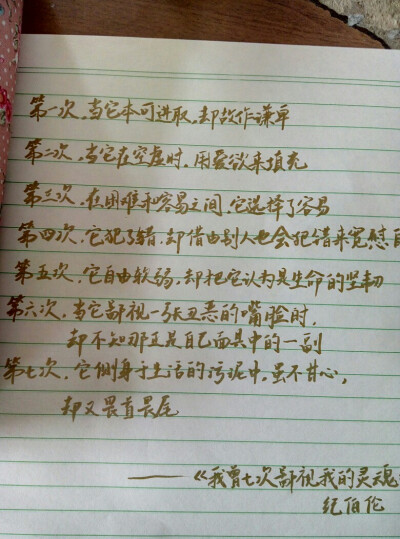 第一次,当它本可进取,却故作谦卑
第二次,当它在空虚时,用爱欲来填充
第三次,在困难和容易之间,它选择了容易
第四次,它犯了错,却借由别人也会犯错来宽慰自
第五次,它自由软弱,却把它认为是生命的坚韧
第六次,当它鄙视一张丑恶的嘴脸时,
却不知那正是自己面具中的一副
第七次,它侧身于生活的污泥中,虽不甘心,
却又畏首畏尾
——《我曾七次鄙视我的灵魂》
纪伯伦